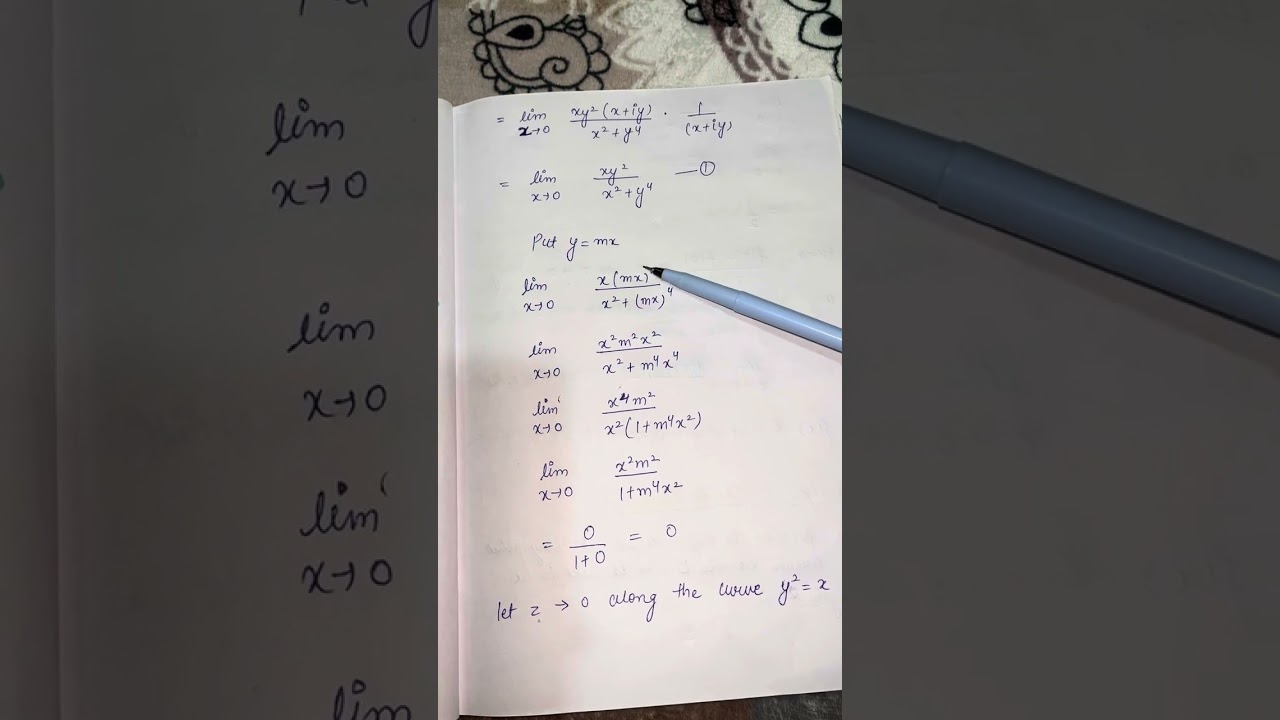 Put y
= lim x→0 xy²(x+iy)/x²+y⁴ · 1/(x+iy)
= lim x→0 xy²/x²+y⁴ —①
Put y=mx
lim x→0 x(mx)/x²+(mx)⁴
lim x→0 x²m²x²/x²+m⁴x⁴
lim x→0 x⁴m²/x²(1+m⁴x²)
lim x→0 x²m²/1+m⁴x²
= 0/1+0 = 0
let z → 0 along the curve y²=x
lim
x→0
lim
x→0
lim
x→0
lim